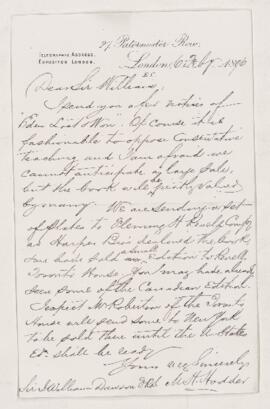 27, Paternoster Row,
TELEGRAPHIC ADDRESS,
EXPOSITOR LONDON.
London, Feby 1896
E.C.
Dear Sir William,
I send you a few notices of
"Eden Lost & Won". Of course it is
fashionable to oppose Conservative
teaching and I am afraid we
cannot anticipate a large sale,
but the book will be greatly valued
by many. We are sending a set
of plates to Fleming H Revell Compy
as Harper Bros declined the book,
& we have sold an edition to Revell's
Toronto House. You may have already
seen some of the Canadian Edition.
I expect Mr Robertson of the Toronto
House will send some to New York
to be sold there until the U. States
Ed. shall be ready
Yours very Sincerely
Sir William Dawson M H Hodder